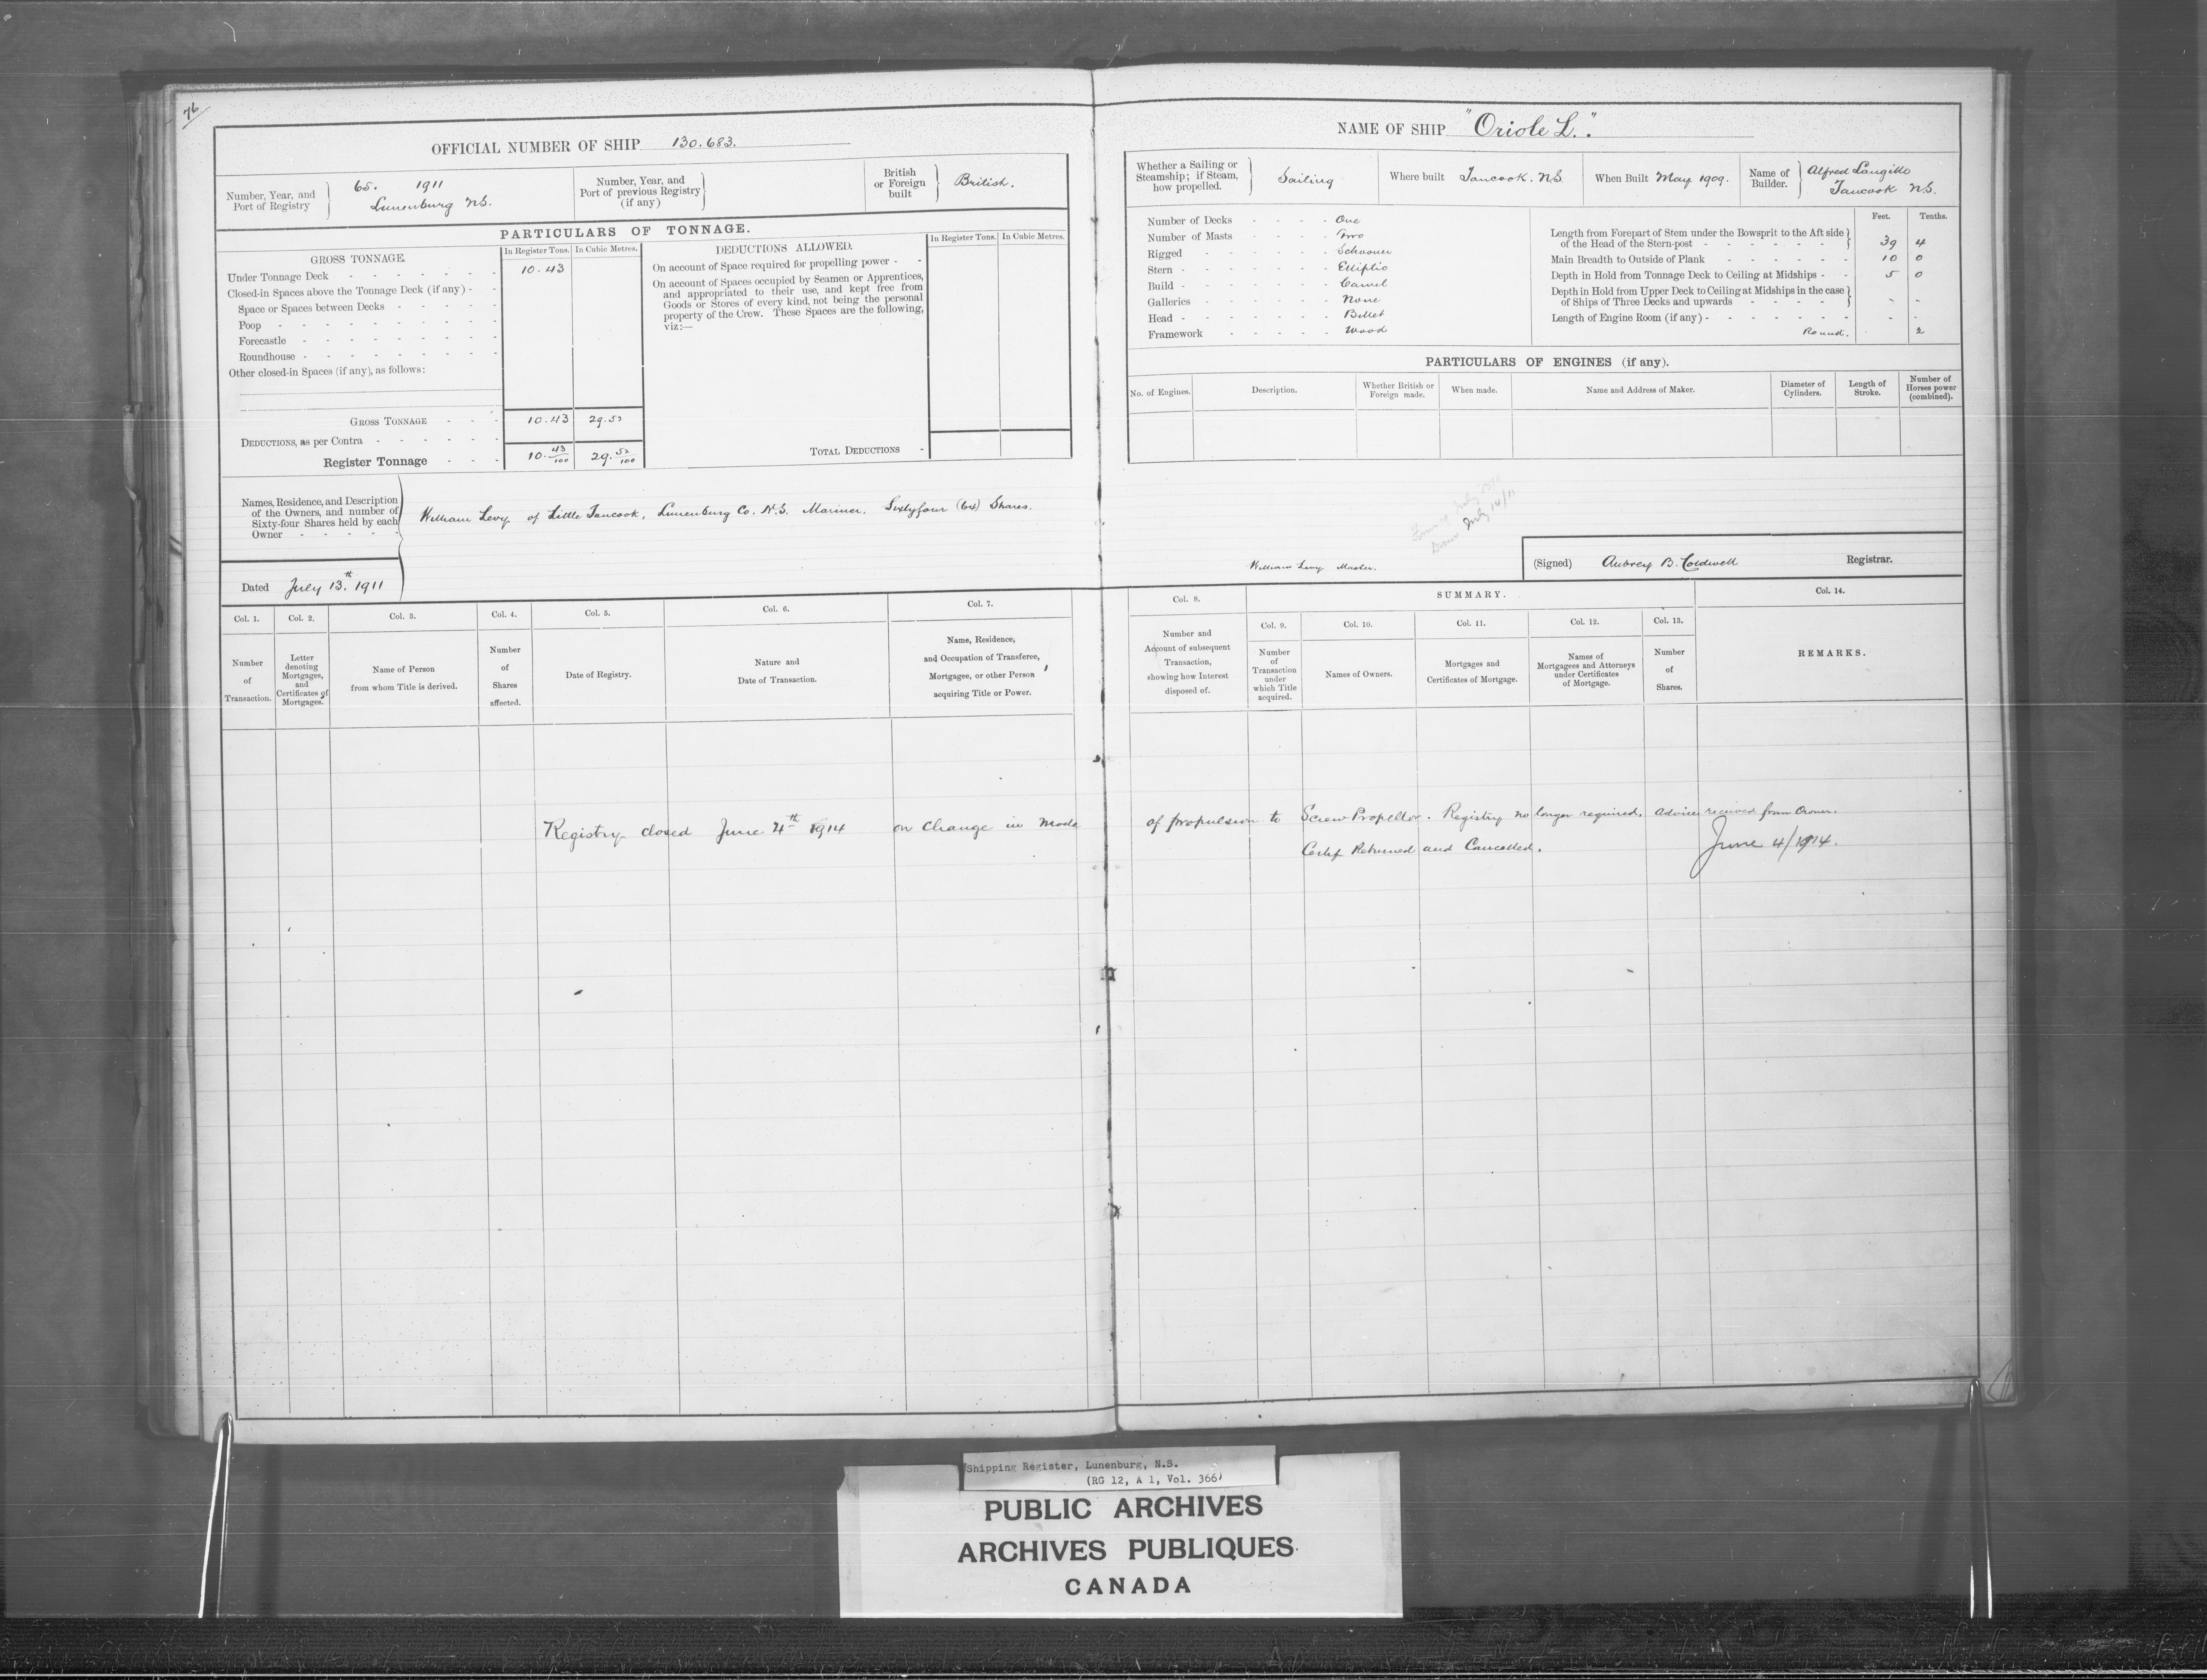 76
OFFICIAL NUMBER OF SHIP 130.683.
Number, Year, and Port of Registry
65. 1911
Lunenburg N.S.
Number, Year, and Port of previous Registry (if any)
British or Foreign built
British.
PARTICULARS OF TONNAGE.
GROSS TONNAGE.
In Register Tons. In Cubic Metres.
Under Tonnage Deck 10.43
Closed-in Spaces above the Tonnage Deck (if any)
Space or Spaces between Decks
Poop
Forecastle
Roundhouse
Other closed-in Spaces (if any), as follows:
GROSS TONNAGE 10.43 29.52
DEDUCTIONS, as per Contra
Register Tonnage 10.43/100 29.52/100
DEDUCTIONS ALLOWED.
In Register Tons. In Cubic Metres.
On account of Space required for propelling power
On account of Spaces occupied by Seamen or Apprentices,
and appropriated to their use, and kept free from
Goods or Stores of every kind, not being the personal
property of the Crew. These Spaces are the following,
viz:—
TOTAL DEDUCTIONS
Names, Residence, and Description
of the Owners, and number of
Sixty-four Shares held by each
Owner
William Levy of Little Tancook, Lunenburg Co. N.S. Mariner, Sixtyfour (64) Shares.
Dated July 13th. 1911
Col. 1. Col. 2. Col. 3. Col. 4. Col. 5. Col. 6. Col. 7.
Number of Transaction.
Letter denoting Mortgages, and Certificates of Mortgages.
Name of Person from whom Title is derived.
Number of Shares affected.
Date of Registry.
Nature and Date of Transaction.
Name, Residence, and Occupation of Transferee, Mortgagee, or other Person acquiring Title or Power.
Registry closed June 4th 1914 on change in mode
NAME OF SHIP "Oriole L."
Whether a Sailing or Steamship; if Steam, how propelled.
Sailing
Where built Tancook. N.S.
When Built May 1909.
Name of Builder.
Alfred Langille
Tancook N.S.
Number of Decks One
Number of Masts Two
Rigged Schooner
Stern Elliptic
Build Carvel
Galleries None
Head Billet
Framework Wood
Feet. Tenths.
Length from Forepart of Stem under the Bowsprit to the Aft side
of the Head of the Stern-post 39 4
Main Breadth to Outside of Plank 10 0
Depth in Hold from Tonnage Deck to Ceiling at Midships 5 0
Depth in Hold from Upper Deck to Ceiling at Midships in the case
of Ships of Three Decks and upwards - -
Length of Engine Room (if any) - -
Round. 2
PARTICULARS OF ENGINES (if any).
No. of Engines. Description. Whether British or Foreign made. When made. Name and Address of Maker. Diameter of Cylinders. Length of Stroke. Number of Horses power (combined).
July 14/11
William Levy Master.
(Signed) Aubrey B. Coldwell Registrar.
Col. 8. SUMMARY. Col. 14.
Col. 9. Col. 10. Col. 11. Col. 12. Col. 13.
Number and Account of subsequent Transaction, showing how Interest disposed of.
Number of Transaction under which Title acquired.
Names of Owners.
Mortgages and Certificates of Mortgage.
Names of Mortgagees and Attorneys under Certificates of Mortgage.
Number of Shares.
REMARKS.
of propulsion to Screw Propellor. Registry no longer required. Advice received from Owner.
Certif Returned and Cancelled. June 4/1914.
Shipping Register, Lunenburg, N.S.
(RG 12, A 1, Vol. 366)
PUBLIC ARCHIVES
ARCHIVES PUBLIQUES
CANADA